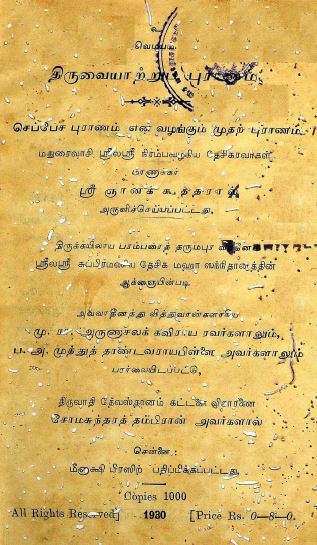 திருவையாற்றுப் புராணம்.
செப்பேச புராணம் என வழங்கும் முதற் புராணம்.
மதுரைவாசி ஸ்ரீலஸ்ரீ தேசிகரவர்கள்
மாணாக்கர்
ஸ்ரீ ஞானக் கூத்தரால்
அருளிச்செய்யப்பட்டது.
திருக்கயிலாய பரம்பரைத் தருமபுர
ஸ்ரீலஸ்ரீ சுப்பிரமணிய தேசிக மஹா ஸந்நிதானத்தின்
ஆக்ஞையின்படி
அவ்வாதீனத்து வித்துவான்களாகிய
மு. ரா. அருணாசலக் கவிராய ரவர்களாலும்,
ப. அ. முத்துத் தாண்டவராயபிள்ளை அவர்களாலும்
பார்வையிடப்பட்டு,
திருவாதி தேவஸ்தானம் கட்டளை விசாரணை
சோமசுந்தரத் தம்பிரான் அவர்களால்
சென்னை :
மீனாக்ஷி பிரஸிற் பதிப்பிக்கப்பட்டது.
Copies 1000
All Rights Reserved] 1930 [Price Rs. 0—8—0.